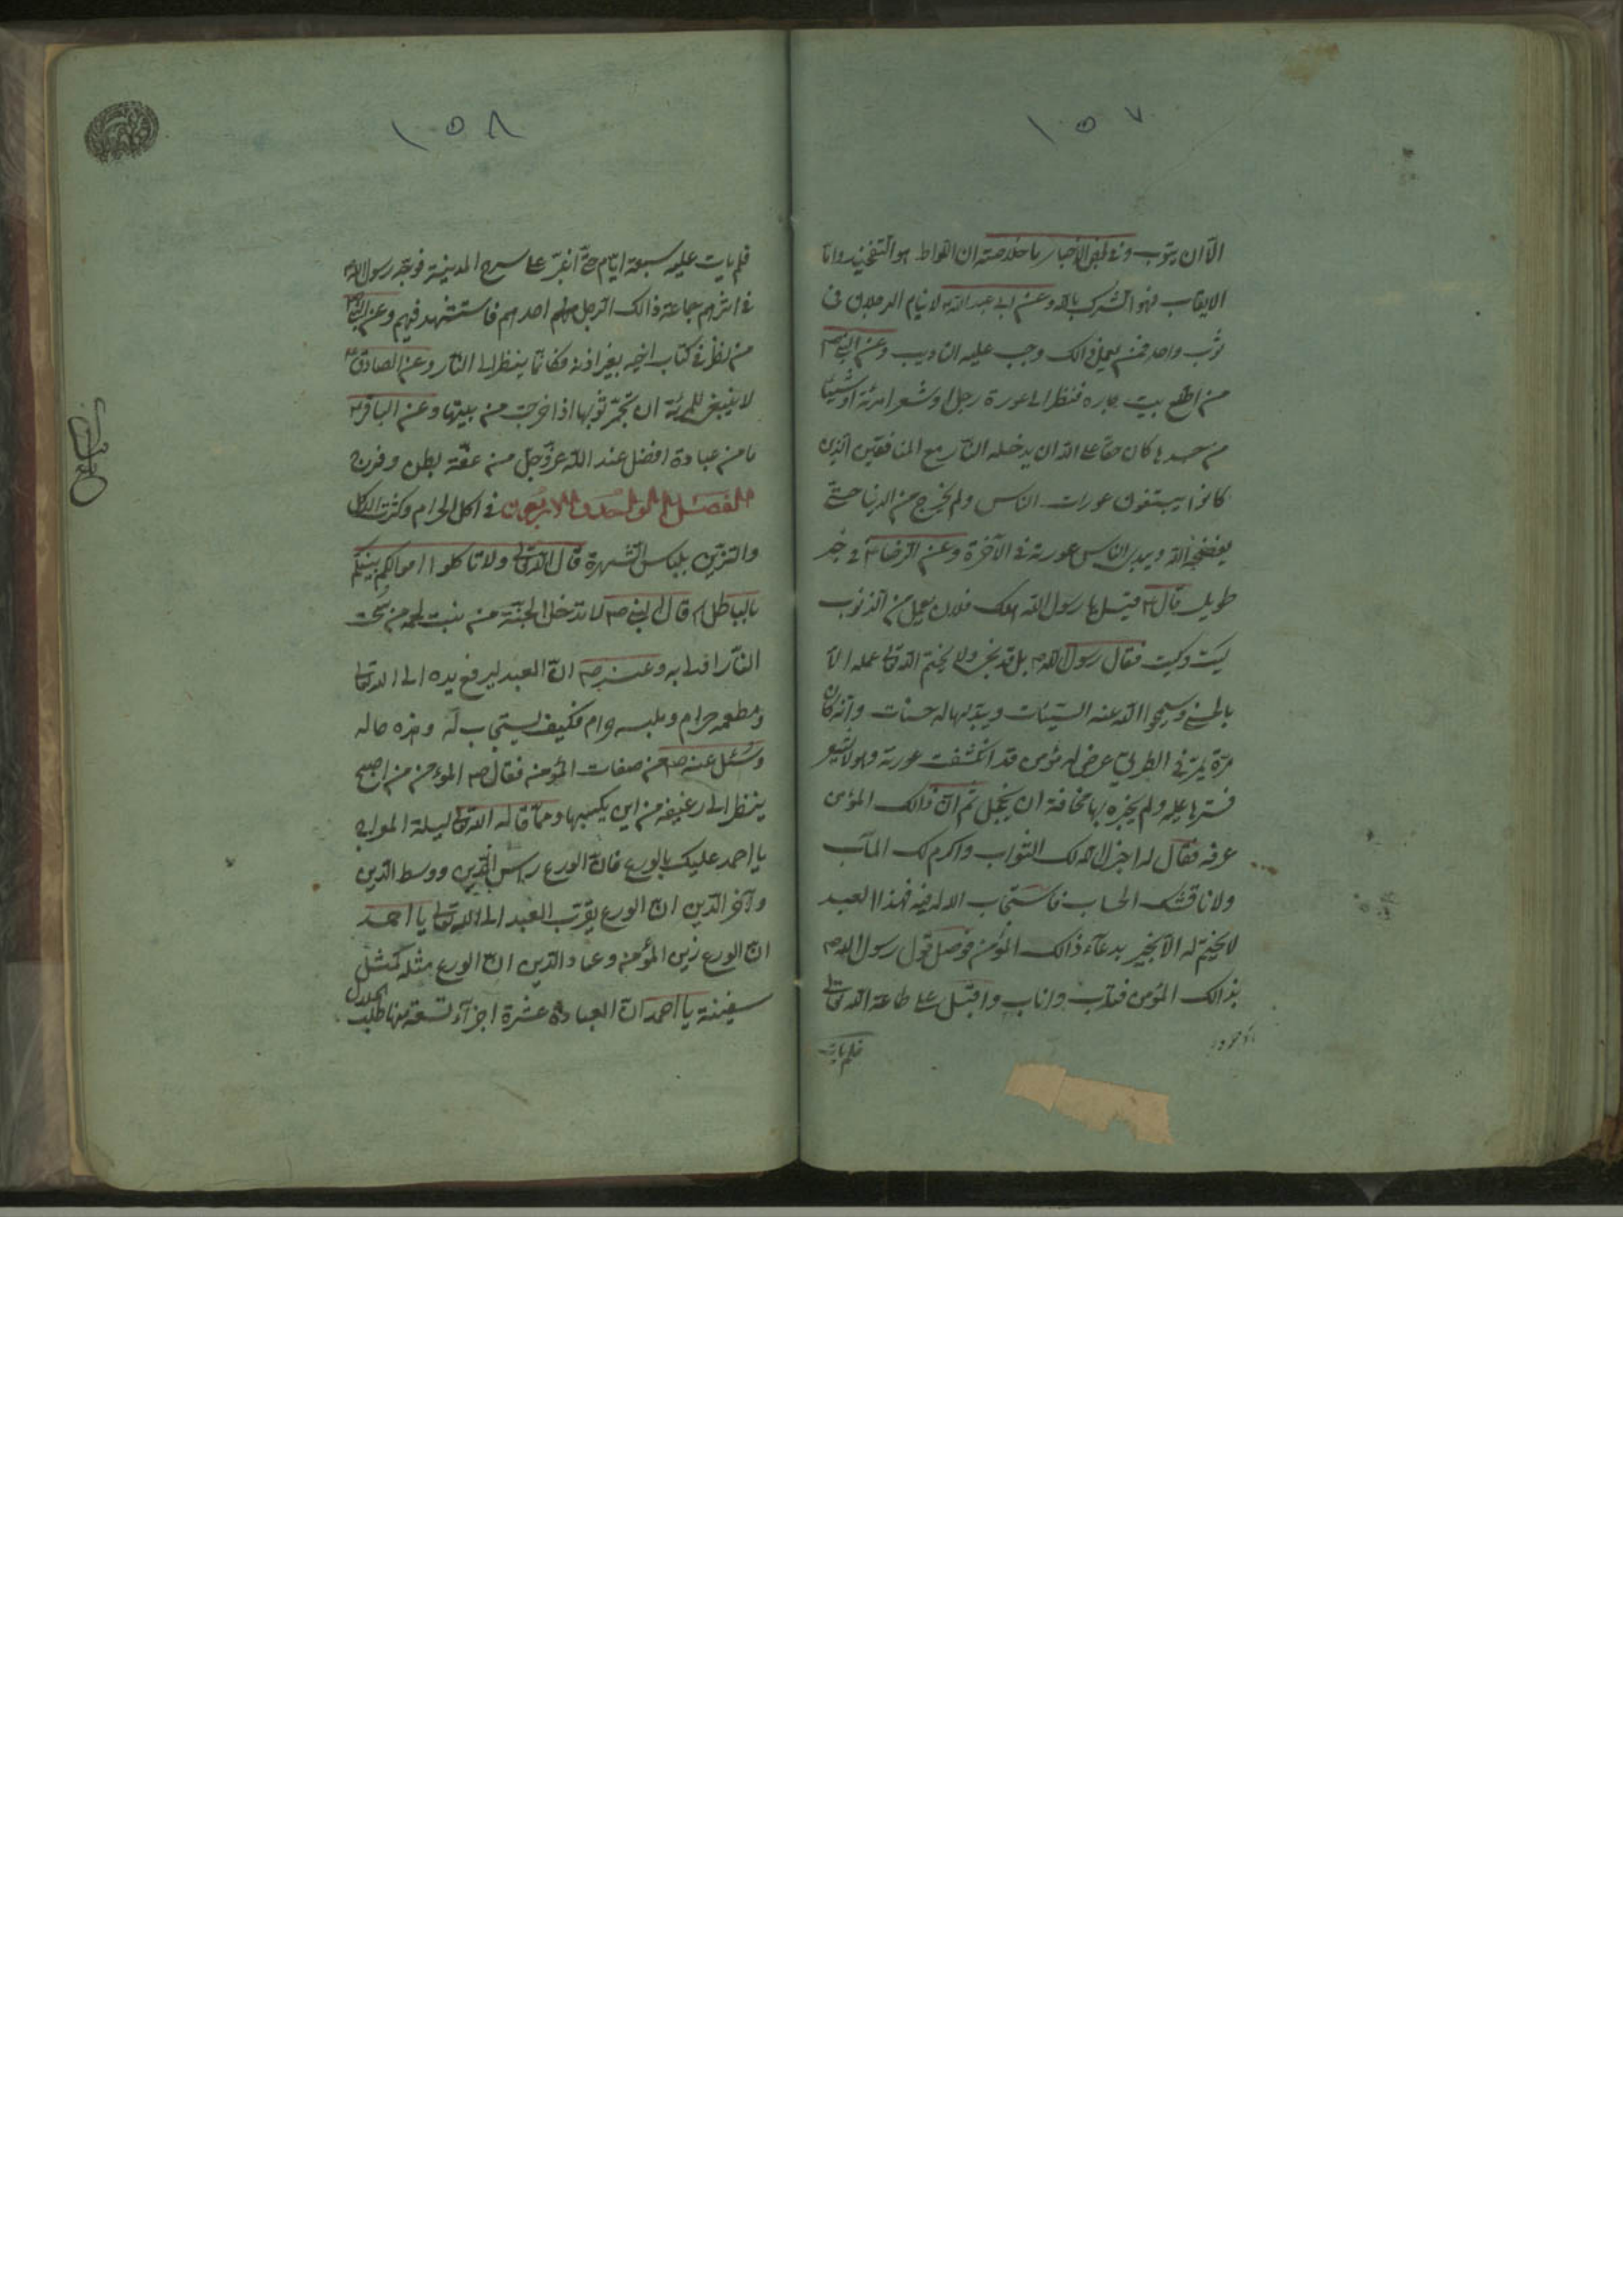 ١٥٧
الّا ان يتوب وفى بعض الأخبار ما خلاصته ان اللواط هو التفخيذ وامّا
الايقاب فهو الشرك بالله وعن ابى عبد الله لا ينام الرجلان فى
ثوب واحد فمن يعمل ذالك وجب عليه التاديب وعن النبى ص
من اطلع بيت جاره فنظر الى عورة رجل او شعر امرئة او شيئا
من جسدها كان حقا على الله ان يدخله النار مع المنافقين الّذين
كانوا يبتغون عورات الناس ولم يخرج من الدنيا حتّى
يفضحه الله ويبدى للناس عورته فى الآخرة وعن الرضا ع فى خبر
طويل قال ع قيل يا رسول الله هلك فلان يعمل من الذنوب
كيت وكيت فقال رسول الله ص بل قد نجى ولا يختم الله تعالى عمله الّا
بالحسنى وسيمحوا الله عنه السّيئات ويبدّلها له حسنات وانّه كان
مرّة يمرّ فى الطريق عرض له مؤمن قد انكشفت عورته وهو لا يشعر
فسترها عليه ولم يخبره بها مخافة ان يخجل ثم انّ ذالك المؤمن
عرفه فقال له اجزل الله لك الثواب واكرم لك المآب
ولا ناقشك الحساب فاستجاب الله له فيه فهذا العبد
لا يختم له الّا بخير بدعآء ذالك المؤمن فوصل قول رسول الله ص
بذالك المؤمن فتاب واناب واقبل على طاعة الله تعالى
فلم يات
١٥٨
فلم يات عليه سبعة ايّام حتّى اغير على سرح المدينة فوجّه رسول الله ص
فى اثرهم جماعة ذالك الرجل احدهم فاستشهد فيهم وعن النبى ص
من نظر فى كتاب اخيه بغير اذنه فكانّما ينظر الى النار وعن الصادق ع
لا ينبغى للمرئة ان تجمّر ثوبها اذا خرجت من بيتها وعن الباقر ع
ما من عبادة افضل عند الله عزّ وجلّ من عفّة بطن وفرج
الفصل الواحد والاربعون فى اكل الحرام وكثرت الاكل
والتزيّن بلباس الشهرة قال الله تعالى ولا تاكلوا اموالكم بينكم
بالباطل قال النبى ص لا تدخل الجنّة من نبت لحمه من سحت
النّار اولى به وعنه ص انّ العبد ليرفع يده الى الله تعالى
ومطعمه حرام وملبسه حرام فكيف يستجاب له وهذه حاله
وسئل عنه ص عن صفات المؤمن فقال ص المؤمن من اصبح
ينظر الى رغيفه من اين يكسبها وممّا قاله الله تعالى ليلة المعراج
يا احمد عليك بالورع فانّ الورع راس الدّين ووسط الدّين
وآخر الدّين انّ الورع يقرّب العبد الى الله تعالى يا احمد
انّ الورع زين المؤمن وعماد الدّين انّ الورع مثله كمثل
سفينة يا احمد انّ العبادة عشرة اجزآء تسعة منها طلب الحلال